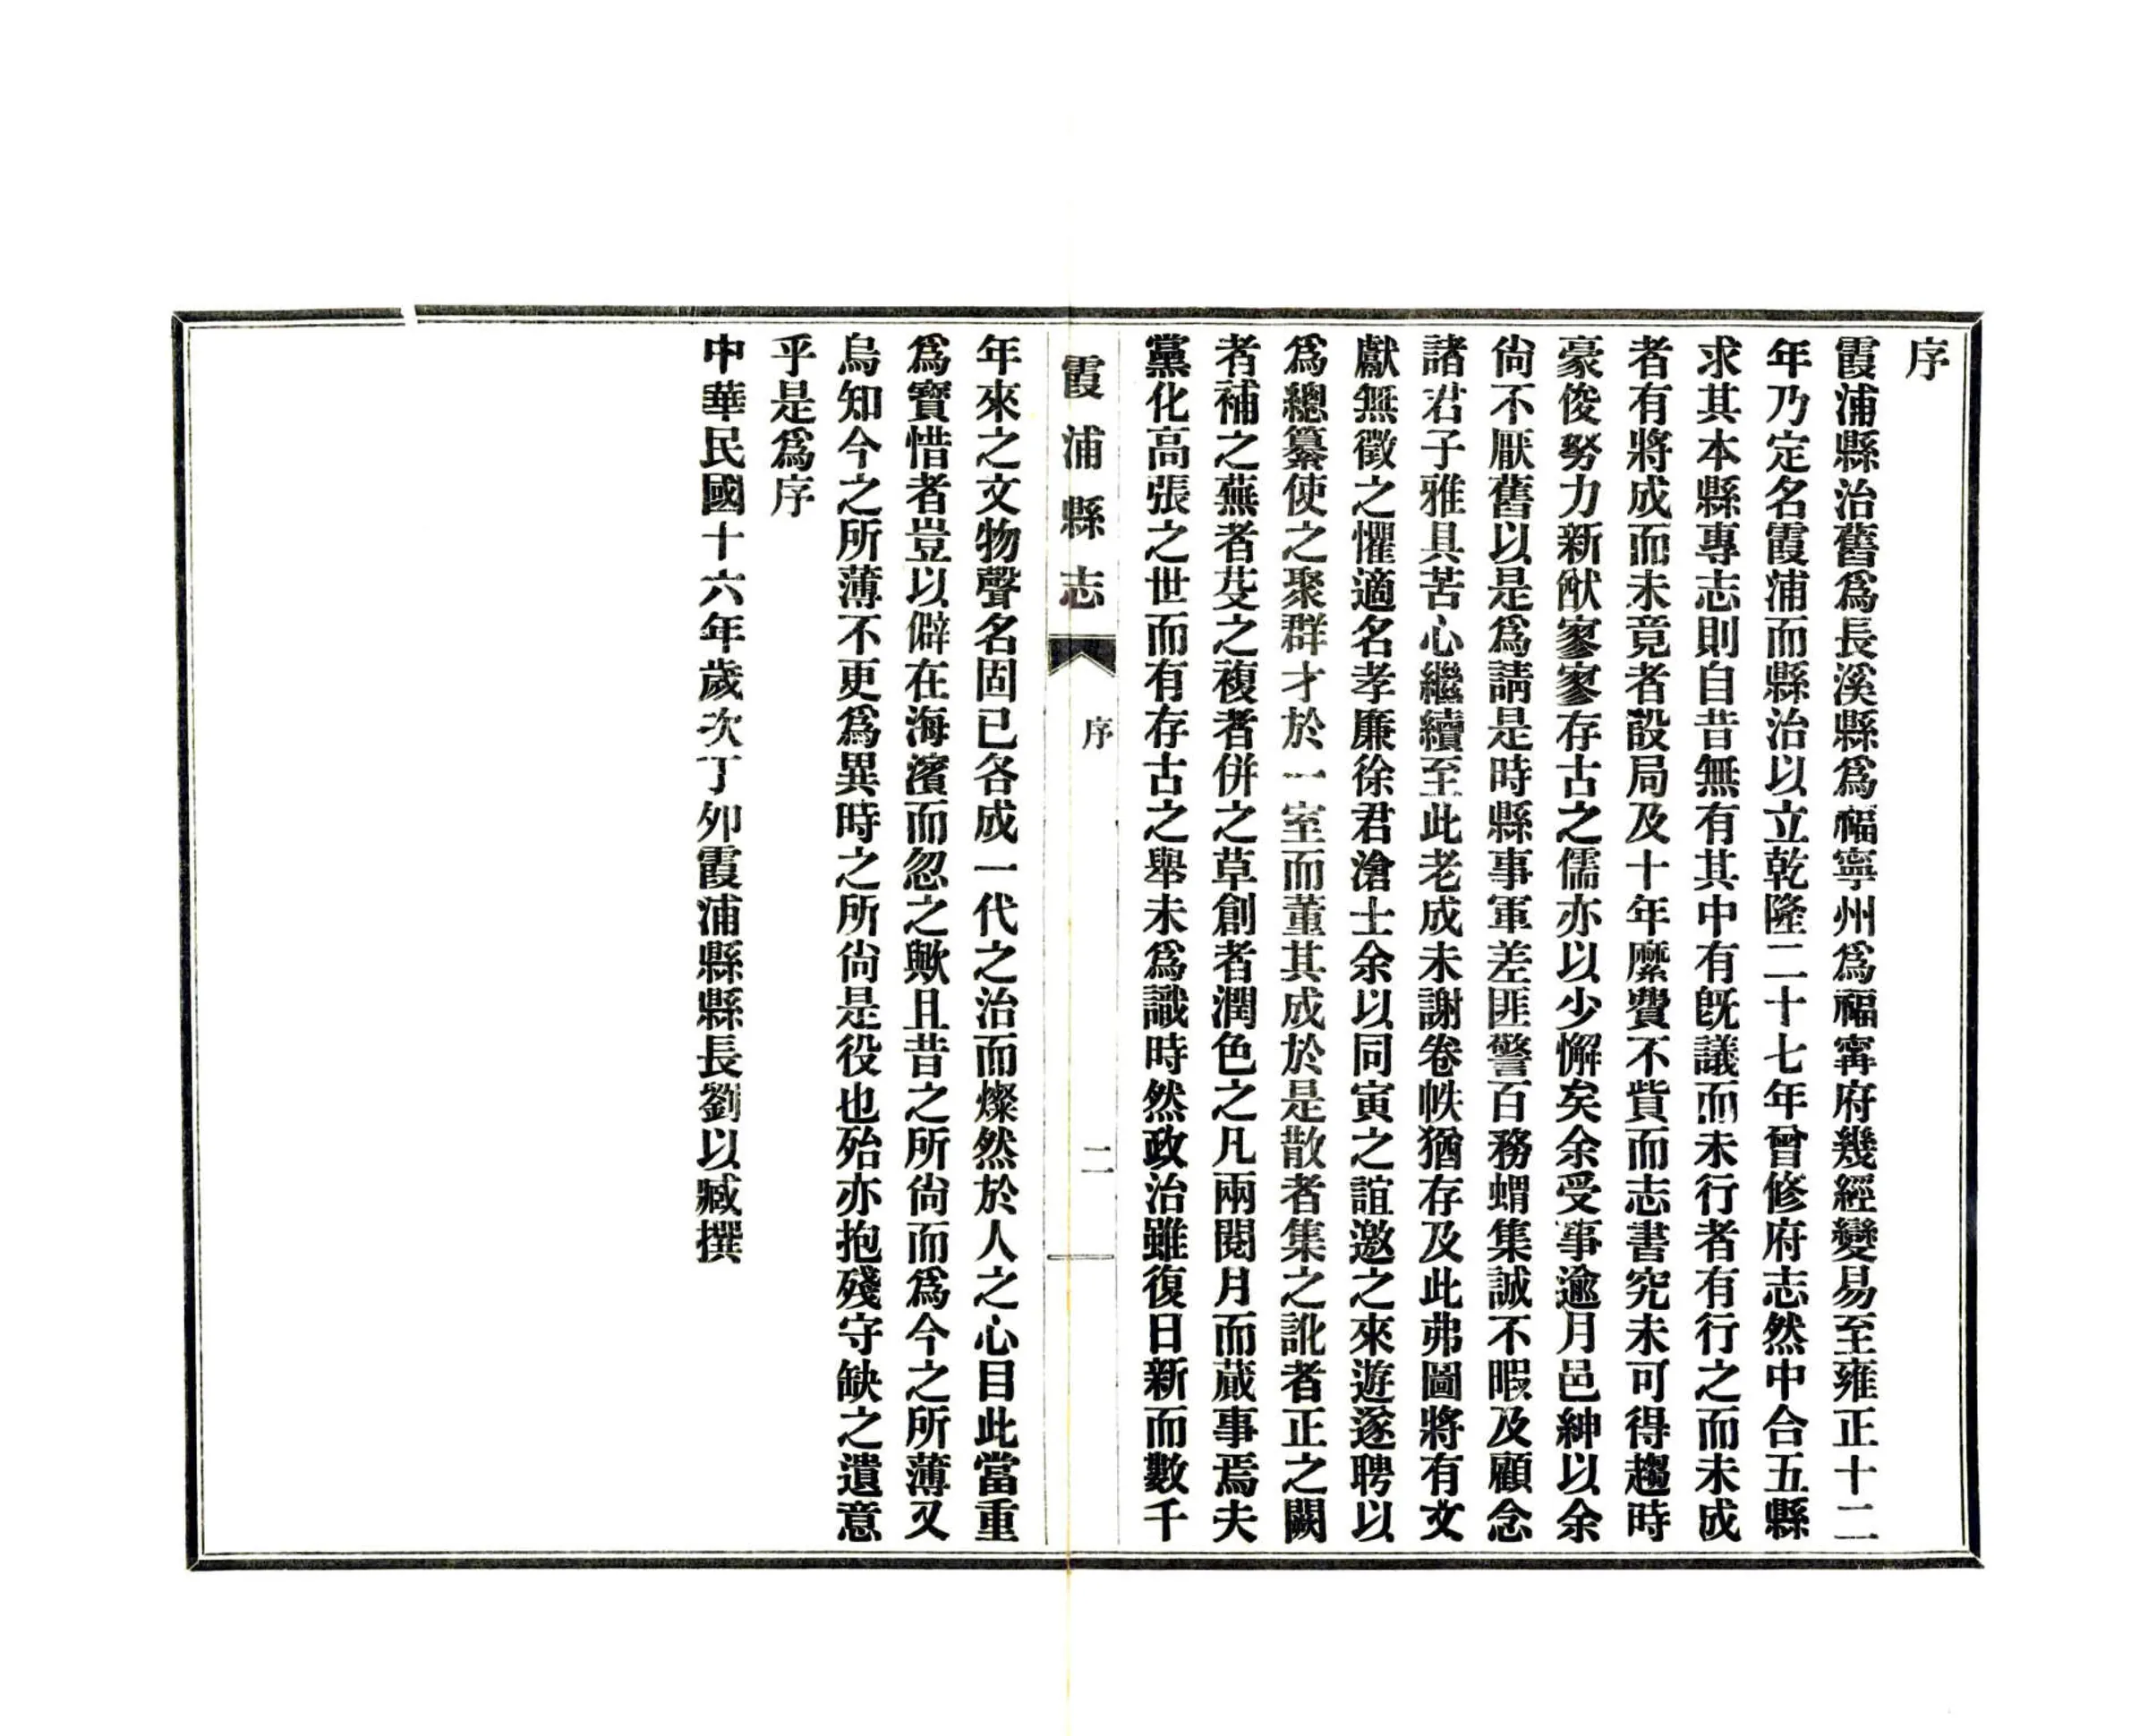 序
霞浦縣治舊爲長溪縣爲福寧州爲福甯府幾經變易至雍正十二
年乃定名霞浦而縣治以立乾隆二十七年曾修府志然中合五縣
求其本縣專志則自昔無有其中有旣議而未行者有行之而未成
者有將成而未竟者設局及十年縻費不貲而志書究未可得趨時
豪俊努力新猷寥寥存古之儒亦以少懈矣余受事逾月邑紳以余
尙不厭舊以是爲請是時縣事軍差匪警百務蝟集誠不暇及顧念
諸君子雅具苦心繼續至此老成未謝卷帙猶存及此弗圖將有文
獻無徵之懼適名孝廉徐君滄士余以同寅之誼邀之來遊遂聘以
爲總纂使之聚群才於一室而董其成於是散者集之訛者正之闕
者補之蕪者芟之複者併之草創者潤色之凡兩閱月而蕆事焉夫
黨化高張之世而有存古之舉未爲識時然政治雖復日新而數千
霞浦縣志
序
二
年來之文物聲名固已各成一代之治而燦然於人之心目此當重
爲寶惜者豈以僻在海濱而忽之歟且昔之所尙而爲今之所薄又
烏知今之所薄不更爲異時之所尙是役也殆亦抱殘守缺之遺意
乎是爲序
中華民國十六年歲次丁卯霞浦縣縣長劉以臧撰